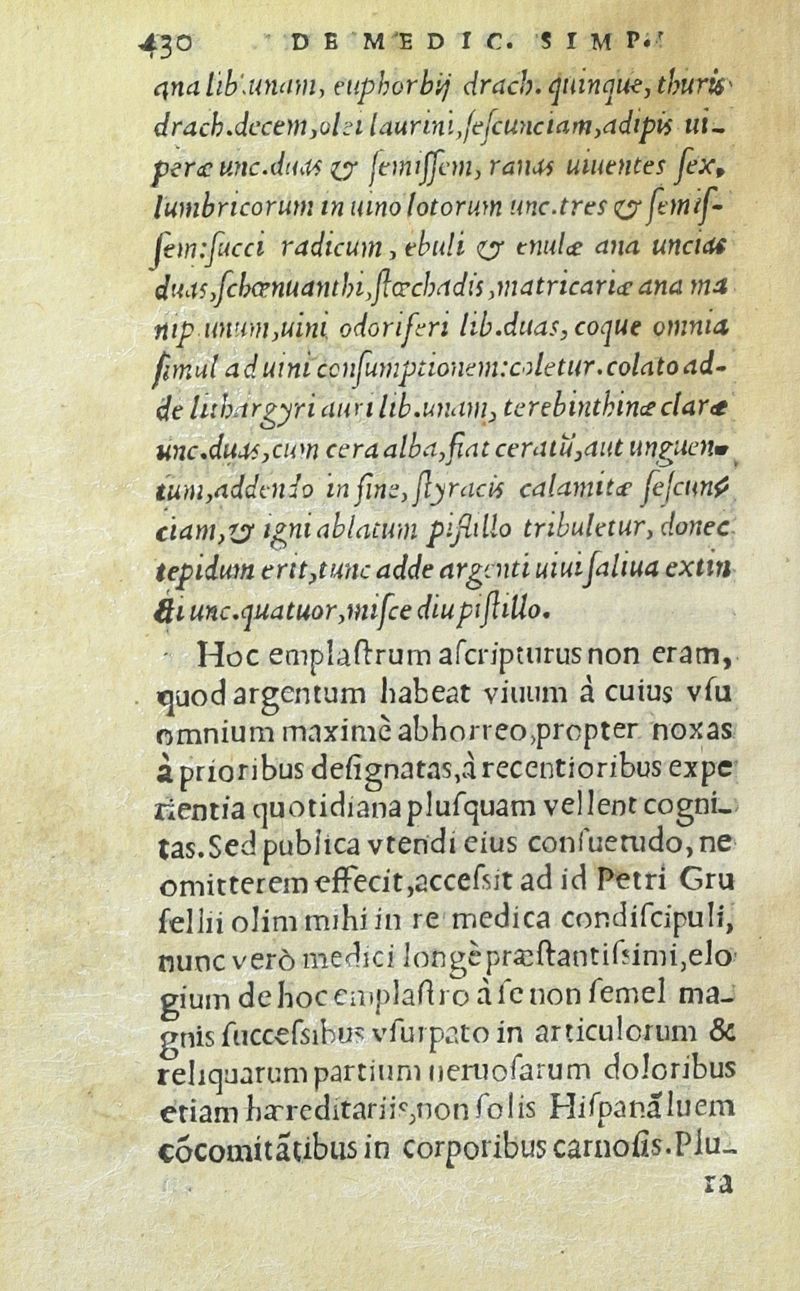 430 DE MEDIC. SIMP.
ana lib.unam, euphorbij drach. quinque, thuris
drach.decem,olei laurini,ſeſcunciam,adipis ui-
peræ unc.duas & ſemiſſem, ranas uiuentes ſex,
lumbricorum in uino lotorum unc.tres & ſemiſ-
ſem:ſucci radicum, ebuli & enulæ ana uncias
duas,ſchœnuanthi,ſtœchadis,matricariæ ana ma
nip.unum,uini odoriferi lib.duas, coque omnia
ſimul ad uini conſumptionem:coletur.colato ad-
de lithargyri auri lib.unam, terebinthinæ claræ
unc.duas,cum cera alba,fiat ceratũ,aut unguen-
tum,addendo in fine, ſtyracis calamitæ ſeſcun-
ciam,& igni ablatum piſtillo tribuletur, donec
tepidum erit,tunc adde argenti uiui ſaliua extin
cti unc.quatuor,miſce diu piſtillo.
Hoc emplaſtrum aſcripturus non eram,
quod argentum habeat viuum à cuius vſu
omnium maximè abhorreo,propter noxas
à prioribus deſignatas,à recentioribus expe
rientia quotidiana pluſquam vellent cogni-
tas. Sed publica vtendi eius conſuetudo, ne
omitterem effecit,acceſsit ad id Petri Gru
fellii olim mihi in re medica condiſcipuli,
nunc verò medici longè præſtantiſsimi,elo
gium de hoc emplaſtro à ſe non ſemel ma-
gnis ſucceſsibus vſurpato in articulorum &
reliquarum partium neruoſarum doloribus
etiam hæreditariis,non ſolis Hiſpanã luem
cõcomitãtibus in corporibus carnoſis. Plu-
ra